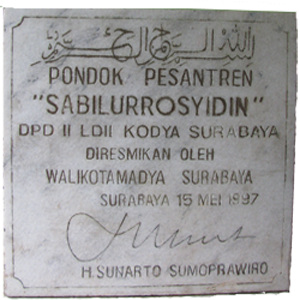 بسم الله الرحمن الرحيم
PONDOK PESANTREN
"SABILURROSYIDIN"
DPD II LDII KODYA SURABAYA
DIRESMIKAN OLEH
WALIKOTAMADYA SURABAYA
SURABAYA 15 MEI 1997
H.SUNARTO SUMOPRAWIRO